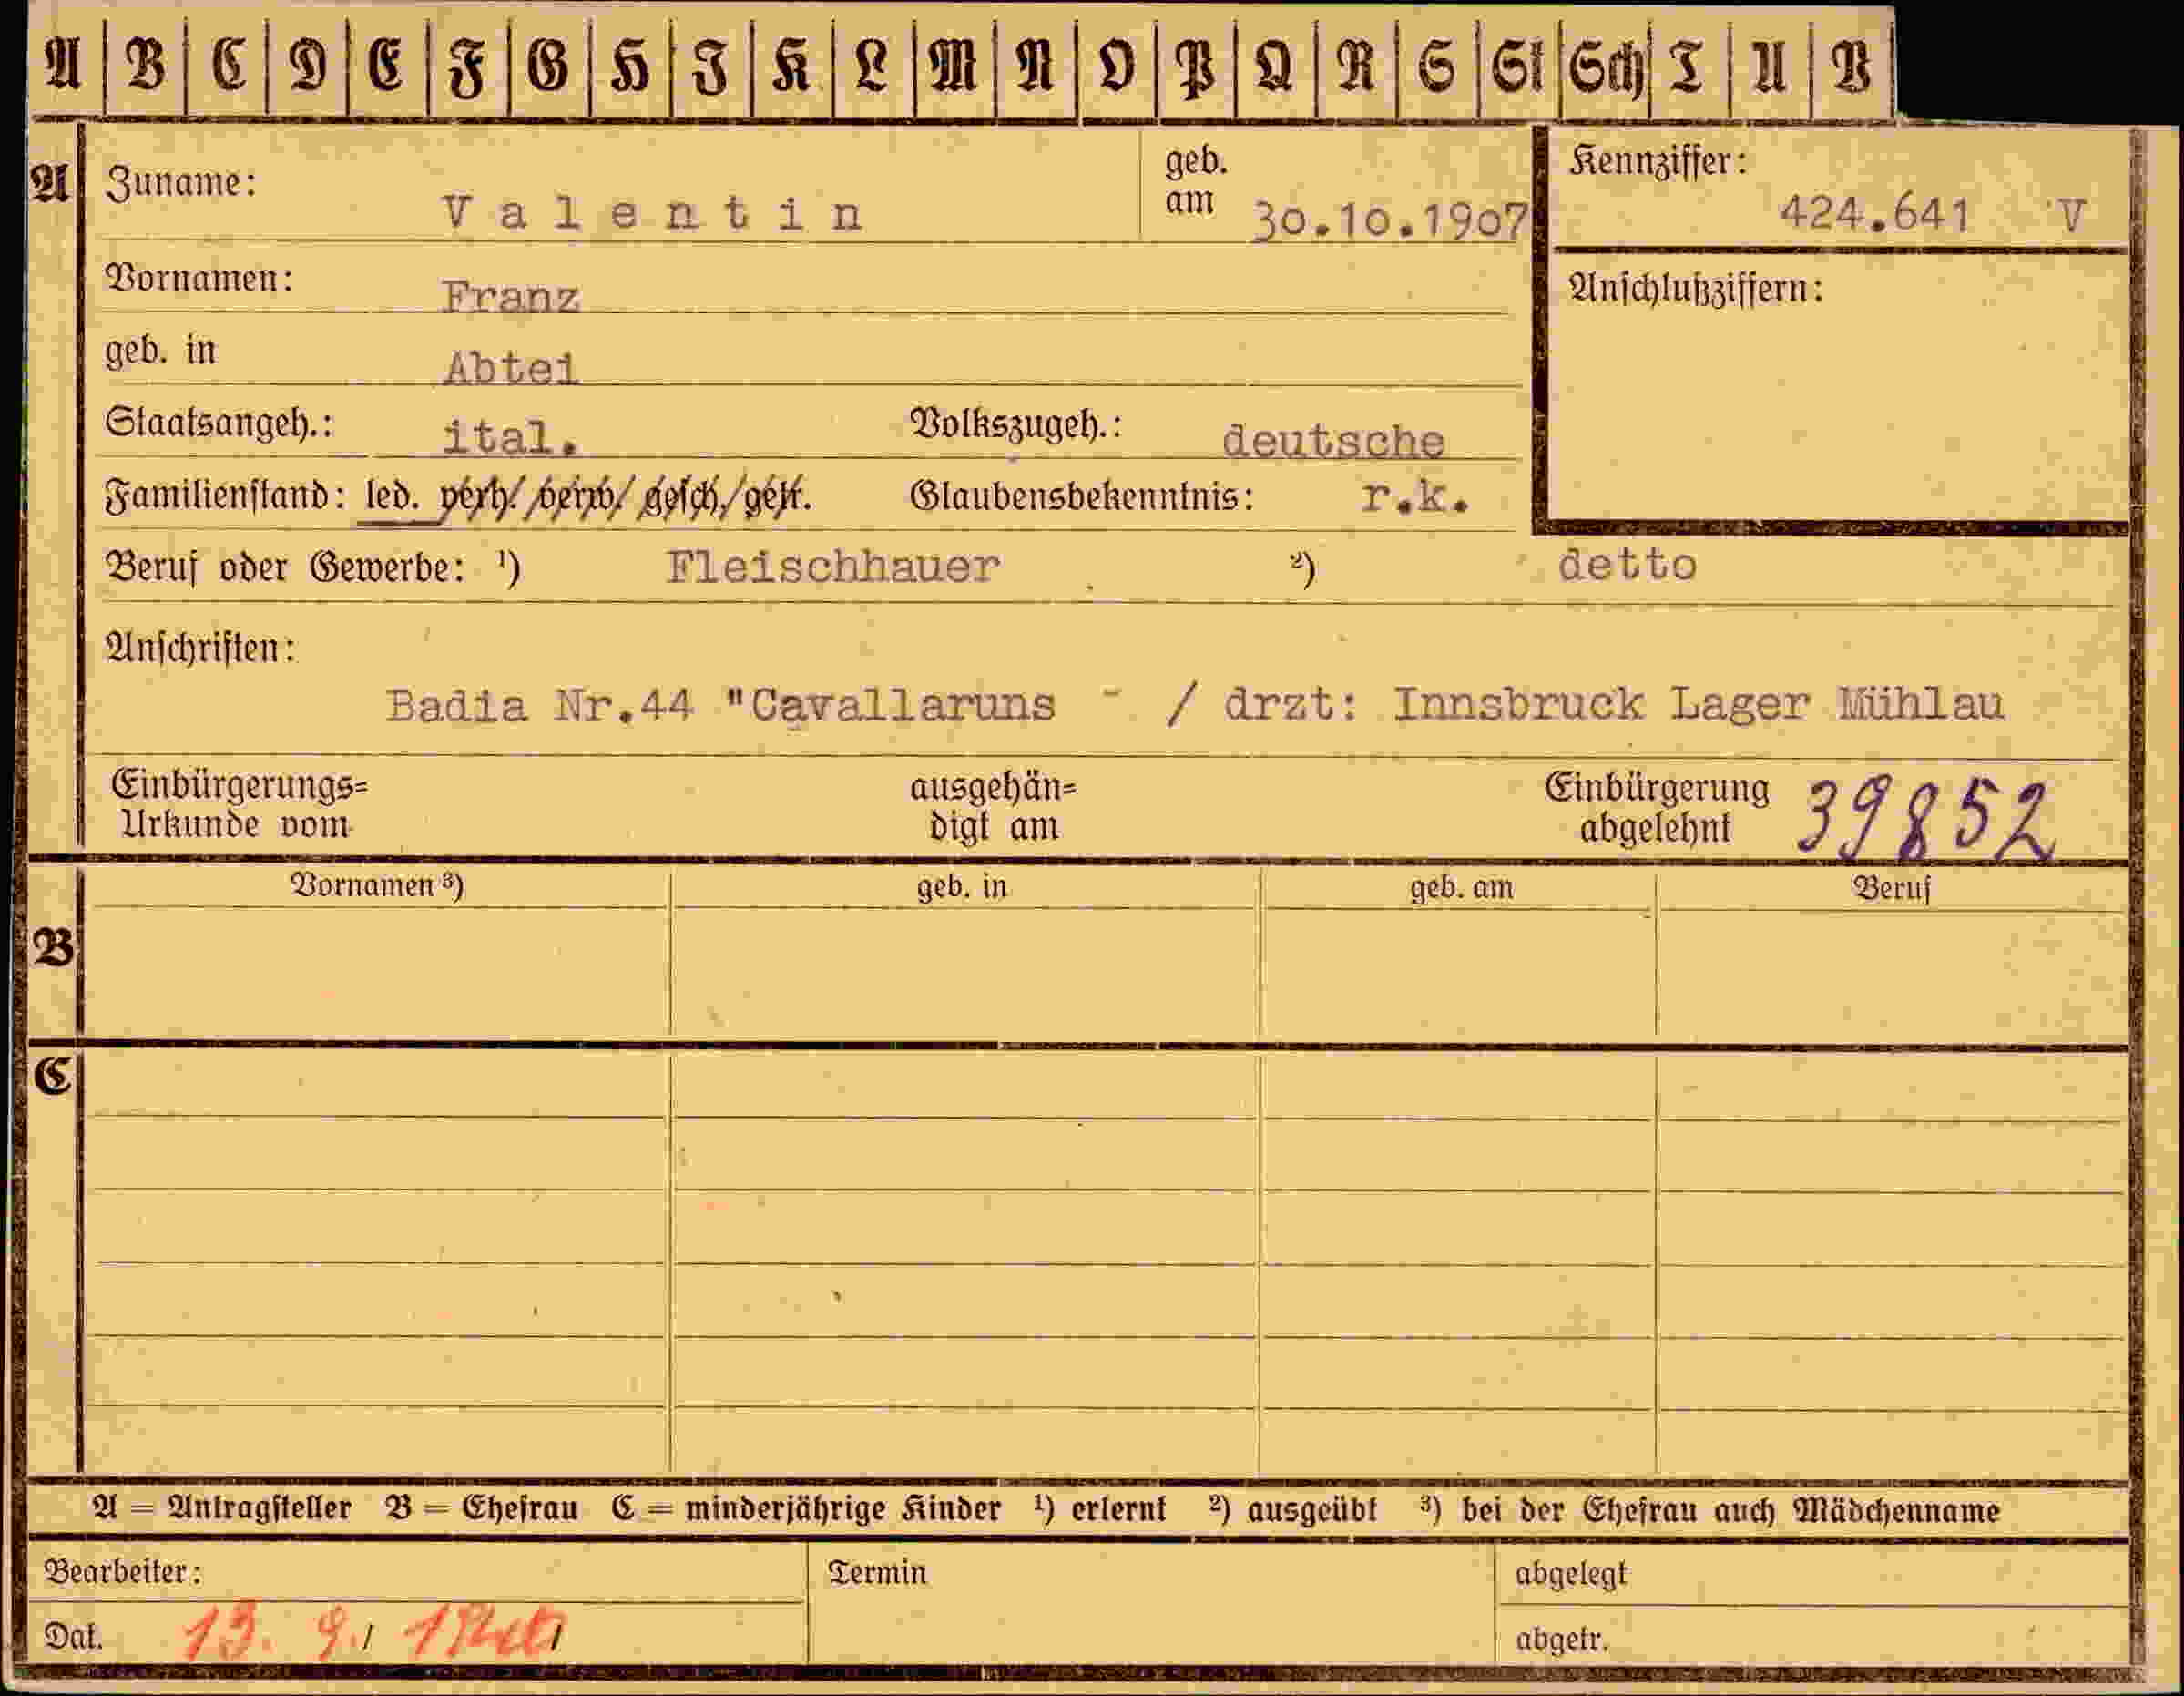 A B C D E F G H J K L M N O P Q R S St Sch T U V
A Zuname: Valentin geb. am 30.10.1907 Kennziffer: 424.641 V
Vornamen: Franz Anschlußziffern:
geb. in Abtei
Staatsangeh.: ital. Volkszugeh.: deutsche
Familienstand: led. verh. verw. gesch. getr. Glaubensbekenntnis: r.k.
Beruf oder Gewerbe: ¹) Fleischhauer ²) detto
Anschriften:
Badia Nr.44 "Cavallaruns - / drzt: Innsbruck Lager Mühlau
Einbürgerungs= ausgehän= Einbürgerung 39852
Urkunde vom digt am abgelehnt
Vornamen ³) geb. in geb. am Beruf
B
C
A = Antragsteller B = Ehefrau C = minderjährige Kinder ¹) erlernt ²) ausgeübt ³) bei der Ehefrau auch Mädchenname
Bearbeiter: Termin abgelegt
Dat. 13. 9. 1940 abgetr.